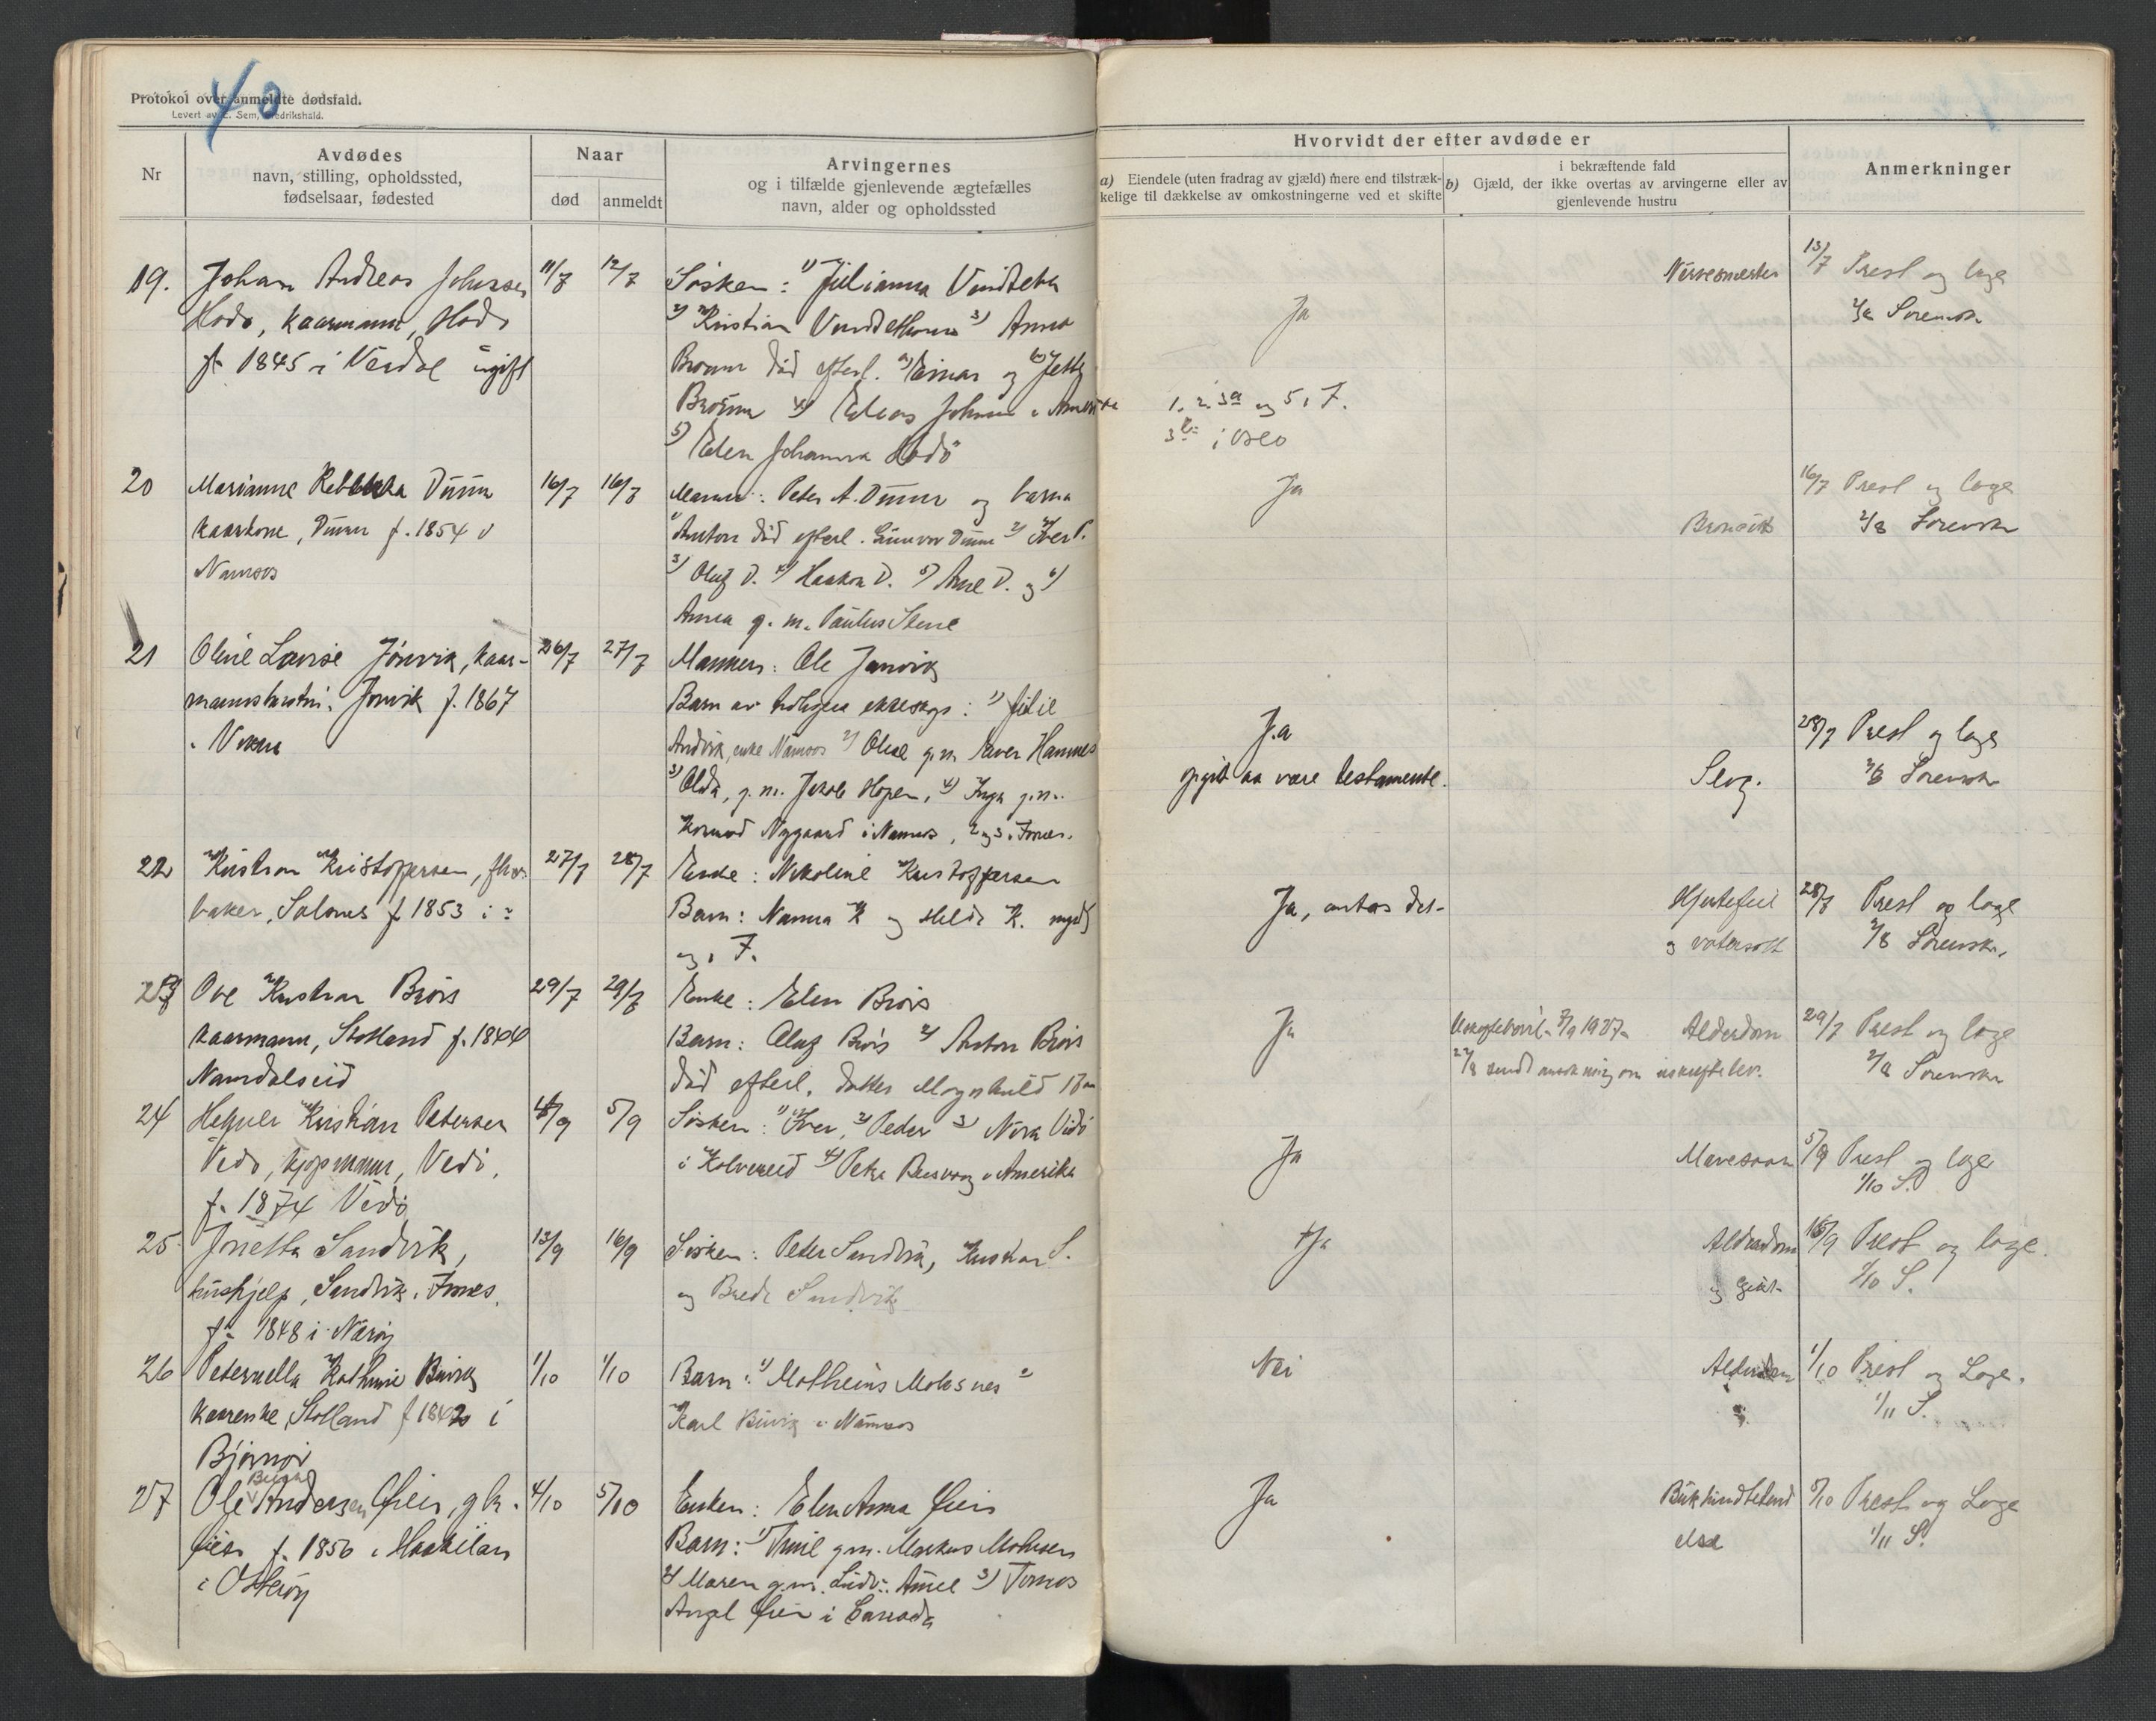 40
Protokol over anmeldte dødsfald.
Levert av E. Sem, Fredrikshald.
Nr
Avdødes
navn, stilling, opholdssted,
fødselsaar, fødested
Naar
død
anmeldt
Arvingernes
og i tilfælde gjenlevende ægtefælles
navn, alder og opholdssted
Hvorvidt der efter avdøde er
a) Eiendele (uten fradrag av gjæld) mere end tilstræk-
kelige til dækkelse av omkostningerne ved et skifte
i bekræftende fald
b) Gjæld, der ikke overtas av arvingerne eller av
gjenlevende hustru
Anmerkninger
19. Johan Andreas Johnsen
Hodø, kaarmann, Hodø
f. 1845 i Verdal ugift
11/7
12/7
Søsken: 1) Julianna
2) Kristian 3) Anna
Brøum død efterl. a) Einar og b) Jetty
Brøum 4) Elias Johnsen i Amerika
5) Elen Johanna Hodø
Ja
1. 2. 3a og 5 i F.
3b i Oslo
13/7 Prest og lage
2/8 Sorenskr
20 Marianne Rebekka Duun
kaarkone, Duun f. 1854 i
Namsos
16/7
16/7
Mann: Peter A. Duun og barna
1) Anton død efterl. Gunvor Duun 2) Iver D.
3) Oluf D. 4) Haakon D. 5) Arne D. og 6)
Anna g. m. Paulus Stene
Ja
16/7 Prest og lage
2/8 Sorenskr
21 Oline Lovise Jønvik, kaar-
mannshustru, Jønvik f. 1867
i Vikna
26/7
27/7
Mannen: Ole Jønvik
Barn av tidligere ekteskap: 1) Julie
Andvik, enke Namsos 2) Oline g.m. Iver Hannes
3) Olda, g. m. Jakob Hopen, 4) Inga g.m.
Konrad Nygaard i Namsos, 2 og 3 i Fosnes.
Ja
opgit aa være testamente.
Slag.
28/7 Prest og lage
2/8 Sorenskr
22 Kristian Kristoffersen,
baker, Salsnes f 1853 i :
27/7
28/7
Enke: Nikoline Kristoffersen
Barn: Nanna K og Hilda K. myndig
og i F.
Ja, antas det
Hjertefeil
og vatersott
28/7 Prest og lage
2/8 Sorenskr.
23 Ove Kristian Brøis
kaarmann, Statland f. 1844
Namdalseid
29/7
29/7
Enke: Elen Brøis
Barn: Oluf Brøis 2) Anton Brøis
død efterl. datter Magnhild 13 aar
Ja
Uskiftebevil. 7/9 1927
27/8 sendt om uskiftebev.
Alderdom
29/7 Prest og lage
2/8 Sorenskr
24 Kristian Petersen
Vedø, kjøpmann, Vedø,
f. 1874 Vedø
5/9
Søsken: 1) Iver, 2) Peder 3) Nora Vedø
i Kolvereid 4) Petra i Amerika
Ja
5/9 Prest og lage
1/10 S.
25 Jonetta Sandvik,
hushjelp, Sandvik i Fosnes,
f. 1848 i Nærøy
13/9
16/9
Søsken: Peter Sandvik, Kristian S.
og Brede Sandvik
Ja
Alderdom
og gikt
16/9 Prest og lage.
1/10 S.
26 Peternella Kathrine Buvik
kaarenke, Statland f 1842 i
Bjørnør
1/10
1/10
Barn: 1) Matheus Moksnes 2
Karl Buvik i Namsos
Nei
Alderdom
1/10 Prest og Lage.
1/11 S.
27 Ole Andersen Øien, gbr.
Øien f. 1856 i Haakilan
i Otterøy
4/10
5/10
Enken: Elen Anna Øien
Barn: 1) g.m. Markus Mohnsen
2) Maren g.m. Ludv. Aunel 3) Tomas
Angel Øien i Canada
Ja
Bukhindebetend
else
5/10 Prest og Lage
1/11 S.